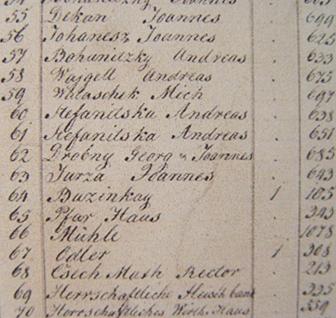 55 Dekan Joannes
56 Johanesz Joannes 625
57 Bohunitzky Andreas
58 Vajgell Andreas 673
59 Michl 697
60 Stefanitska Andreas 638
61 Stefanitska Andreas 651
62 Drobny Georg u Joannes 685
63 Jurza Joannes 643
64 Buzinkay 1 105
65 Pfar Haus
66 Mühle 1078
67 Odler 1 308
68 Csech Math Rector 213
69 Herrschaftliche 335
70 Herrschaftliches Wirths Haus 559